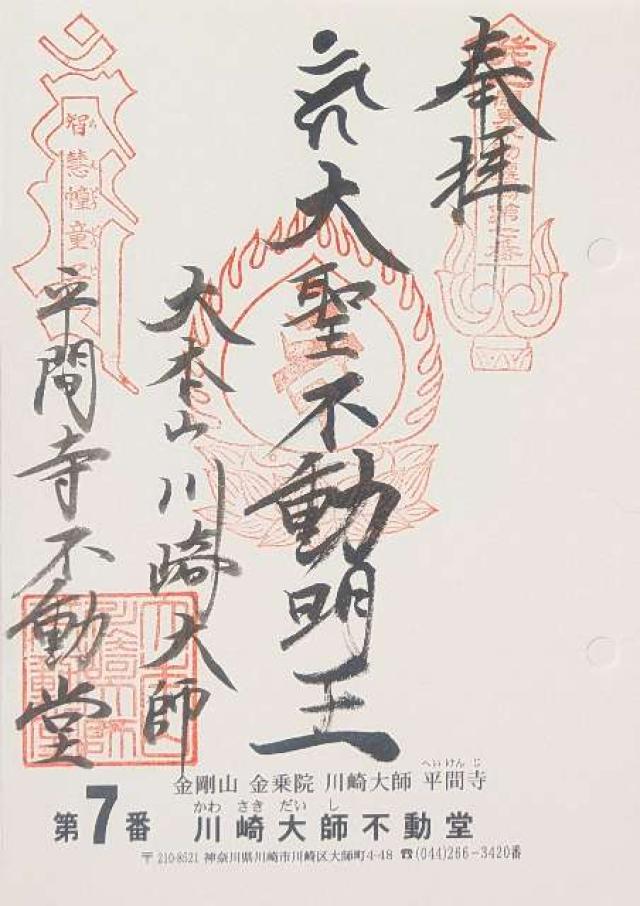 奉拝
大聖不動明王
大本山川崎大師
平間寺不動堂
智慧幢童子
金剛山 金乗院 川崎大師 平間寺
へいけんじ
第7番 川崎大師不動堂
かわさきだいし
〒210-8521 神奈川県川崎市川崎区大師町4-48 ☎(044)266-3420番